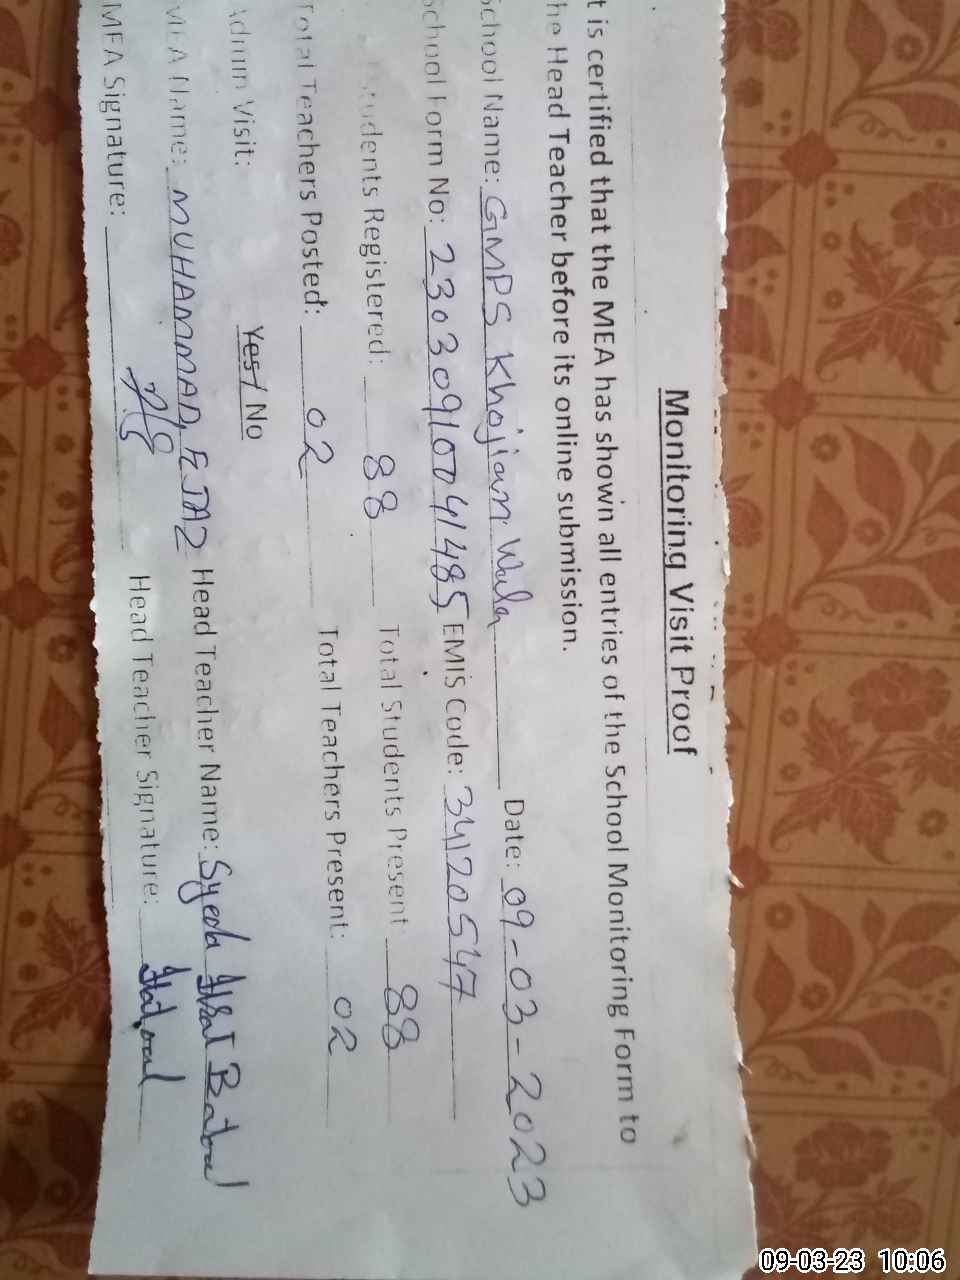 Monitoring Visit Proof
t is certified that the MEA has shown all entries of the School Monitoring Form to
he Head Teacher before its online submission.
School Name: GMPS Khojian Wala Date: 09-03-2023
School Form No: 23030910041485 EMIS Code: 34120547
Students Registered: 88 Total Students Present 88
Total Teachers Posted: 02 Total Teachers Present: 02
Admin Visit: Yes/ No
MEA Name: MUHAMMAD EJAZ Head Teacher Name: Syeda Batool
MEA Signature: Head Teacher Signature:
09-03-23 10:06